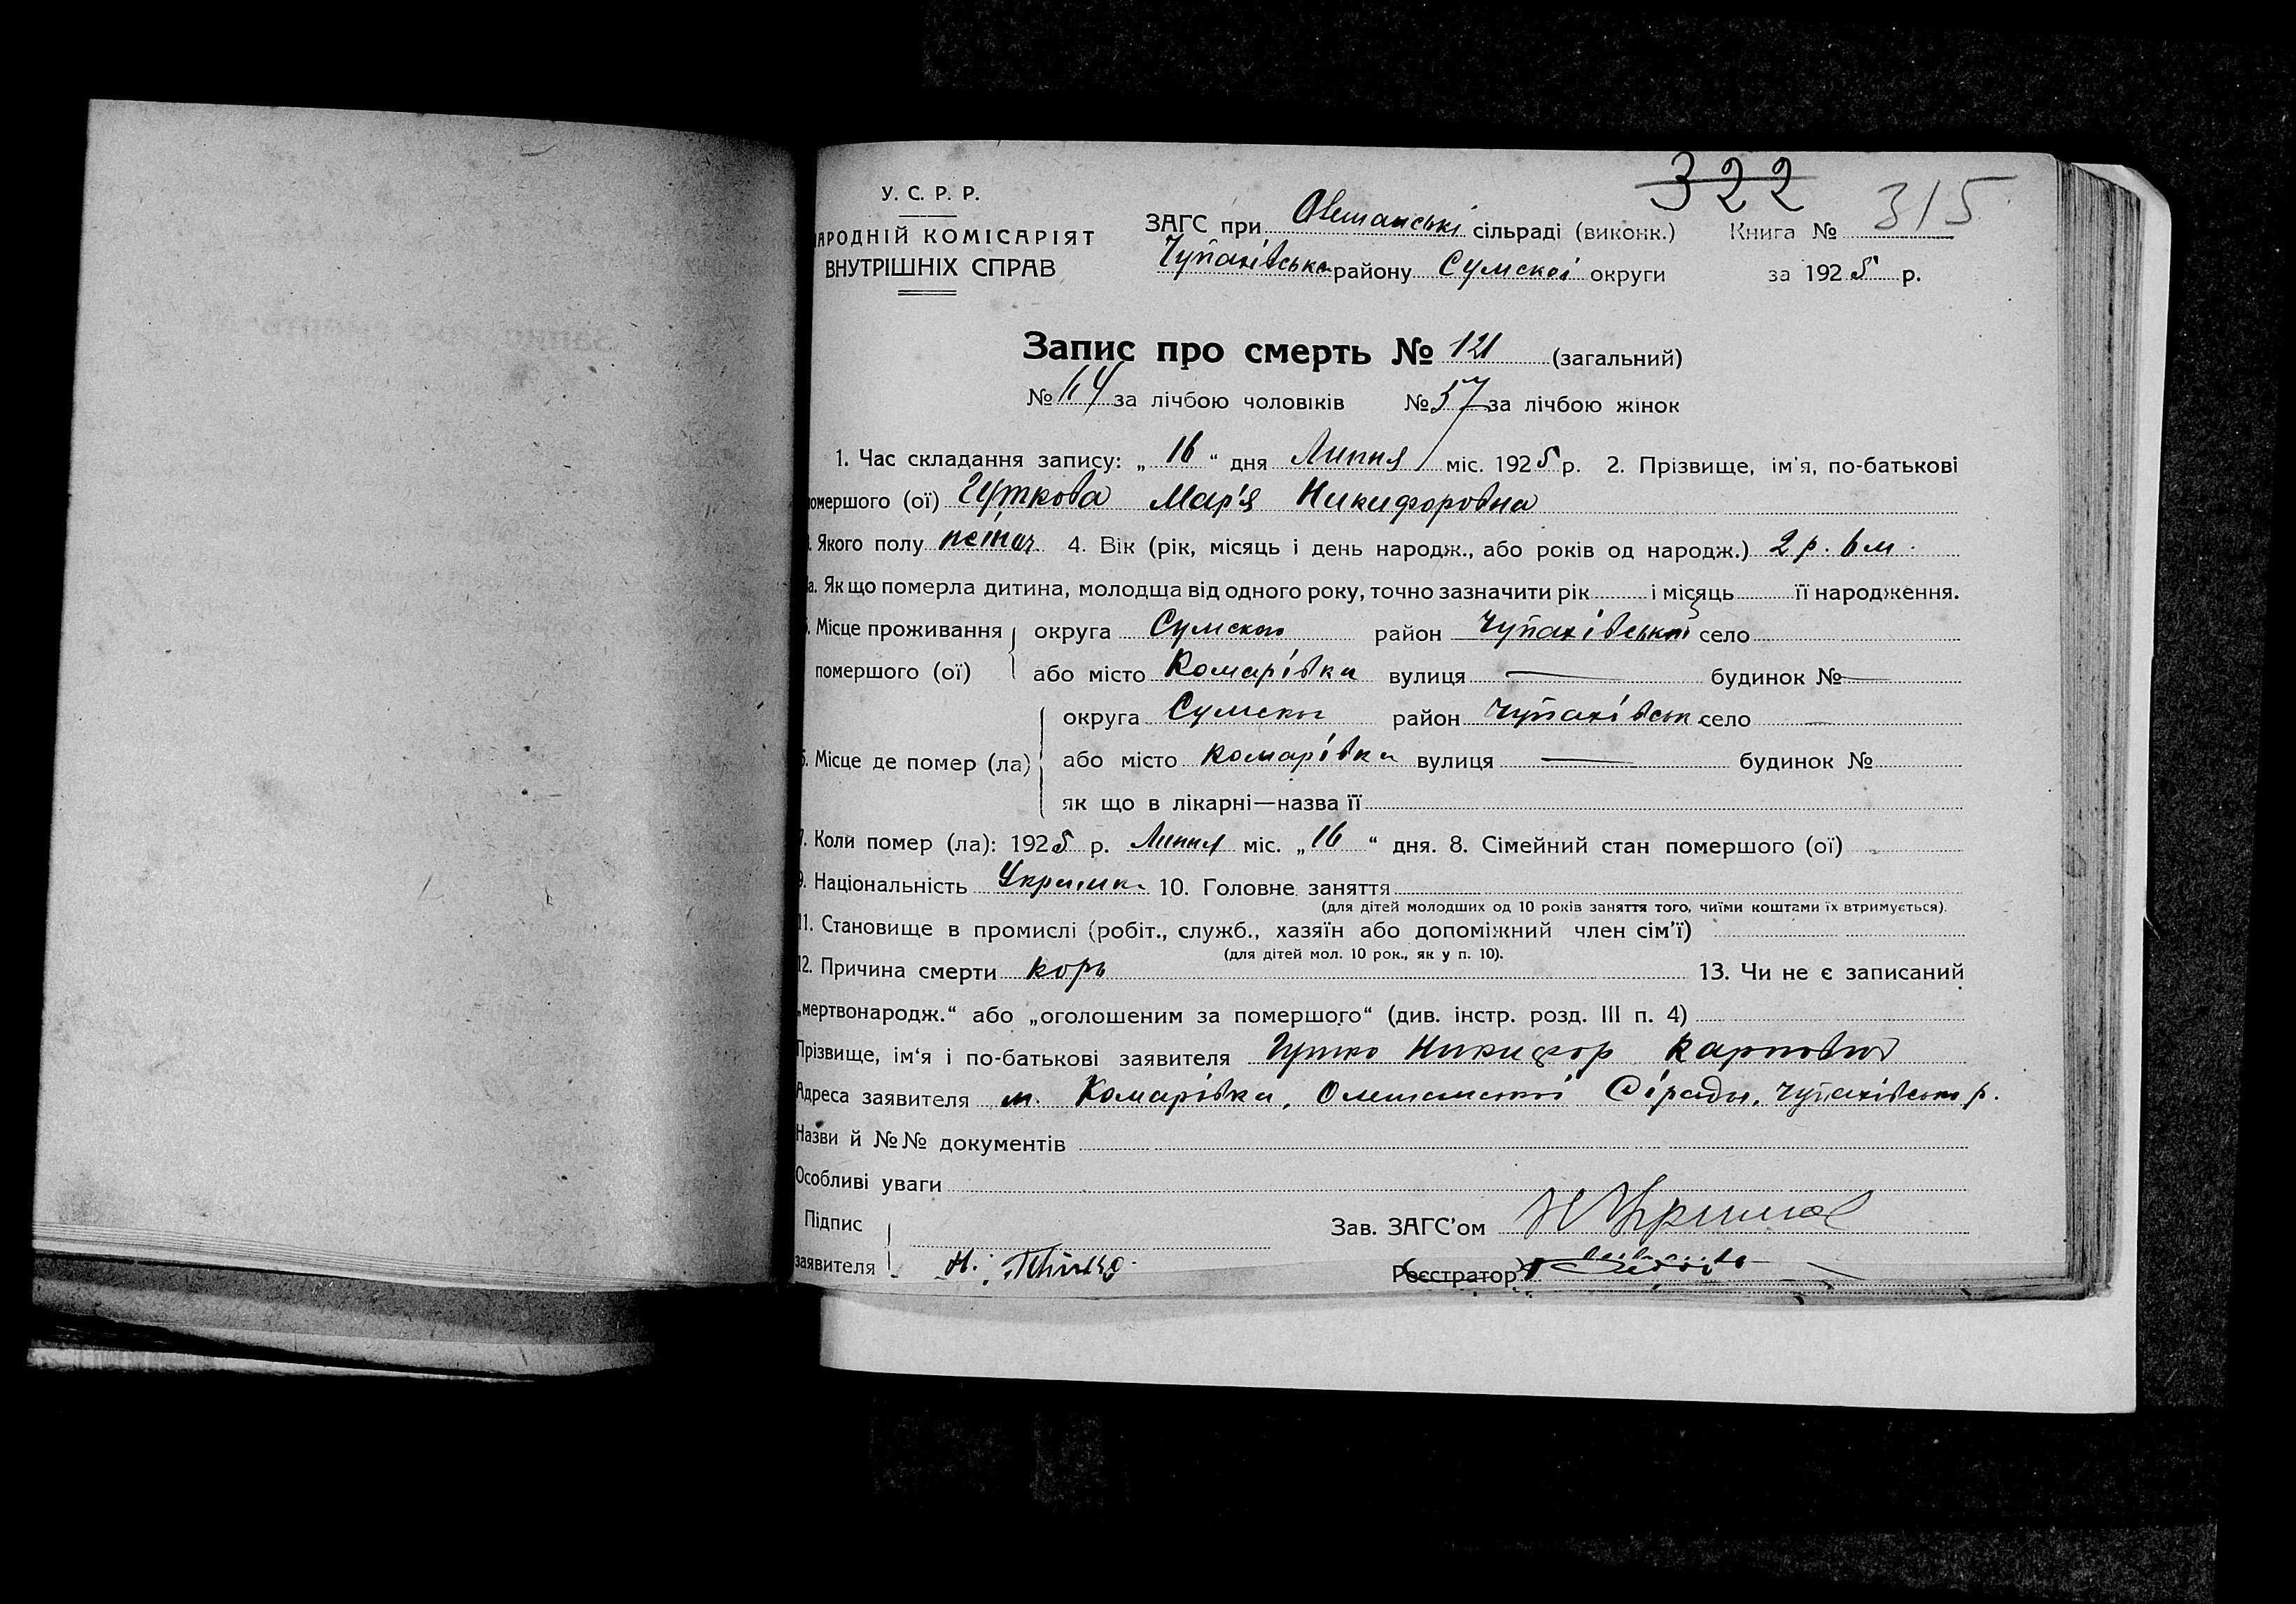 322
315
У. С. Р. Р.
АРОДНІЙ КОМІСАРІЯТ
ВНУТРІШНІХ СПРАВ
ЗАГС при Олешанські сільраді (виконк.) Книга №
Чупахівська району Сумскої округи за 1925 р.
Запис про смерть № 121 (загальний)
№ 64 за лічбою чоловіків № 57 за лічбою жінок
1. Час складання запису: „ 16 “ дня Липня міс. 1925 р. 2. Прізвище, ім'я, по-батькові
омершого (ої) Гуткова Мар'я Никифоровна
Якого полу 4. Вік (рік, місяць і день народж., або років од народж.) 2 р. 6 м.
а. Як що померла дитина, молодща від одного року, точно зазначити рік і місяць її народження.
Місце проживання округа Сумского район Чупахівський село
помершого (ої) або місто Комарівка вулиця — будинок № —
округа район Чупахівськ село —
Місце де помер (ла) або місто Комарівка вулиця — будинок №
як що в лікарні—назва її
7. Коли помер (ла): 1925 р. Липня міс. „ 16 “ дня. 8. Сімейний стан помершого (ої)
9. Національність 10. Головне заняття
(для дітей молодших од 10 років заняття того, чиїми коштами їх втримується).
11. Становище в промислі (робіт., служб., хазяїн або допоміжний член сім'ї)
(для дітей мол. 10 рок., як у п. 10).
12. Причина смерти корь 13. Чи не є записаний
„мертвонародж.“ або „оголошеним за помершого“ (див. інстр. розд. III п. 4)
Прізвище, ім‘я і по-батькові заявителя Гутко Никифор Карпович
Адреса заявителя м. Комарівка, Олешанської Сірады, Чупахівсько р.
Назви й №№ документів
Особливі уваги
Підпис
заявителя
Зав. ЗАГС'ом
Реєстратор